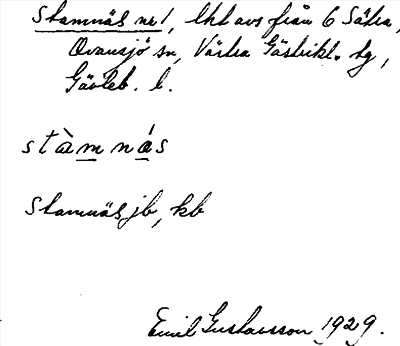 Stamnäs nr 1, lht avs från 6 Sälra,
Ovansjö sn, Västra Gästrikl. tg,
Gävleb. l.
stàmnás
Stamnäs jb, kb
Emil Gustavsson 1929.